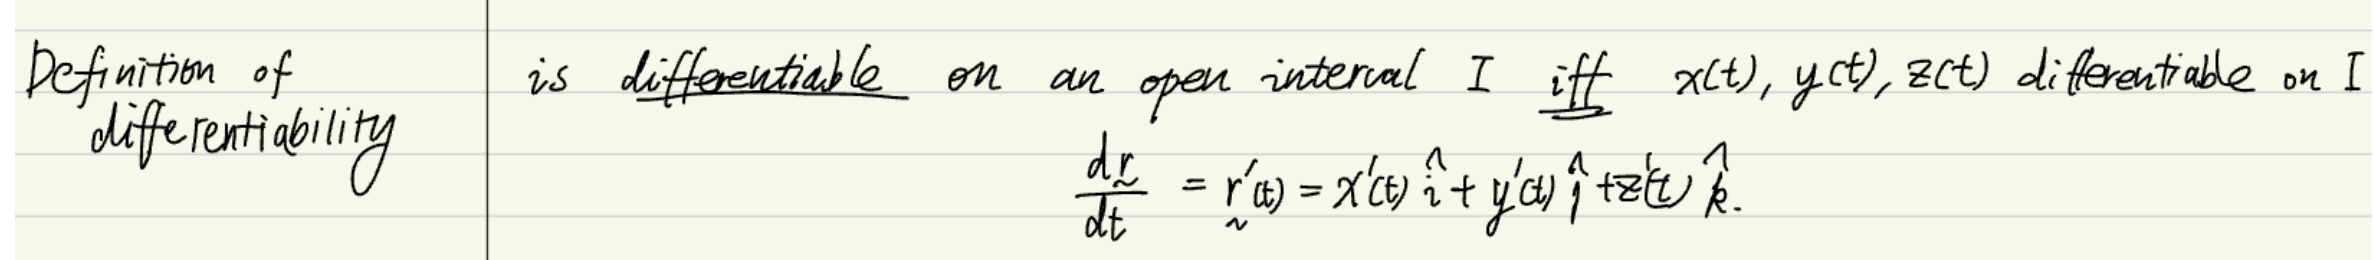 Definition of
differentiability
is differentiable on an open interval I iff x(t), y(t), z(t) differentiable on I
dr̰/dt = r̰'(t) = x'(t) î + y'(t) ĵ + z'(t) k̂.